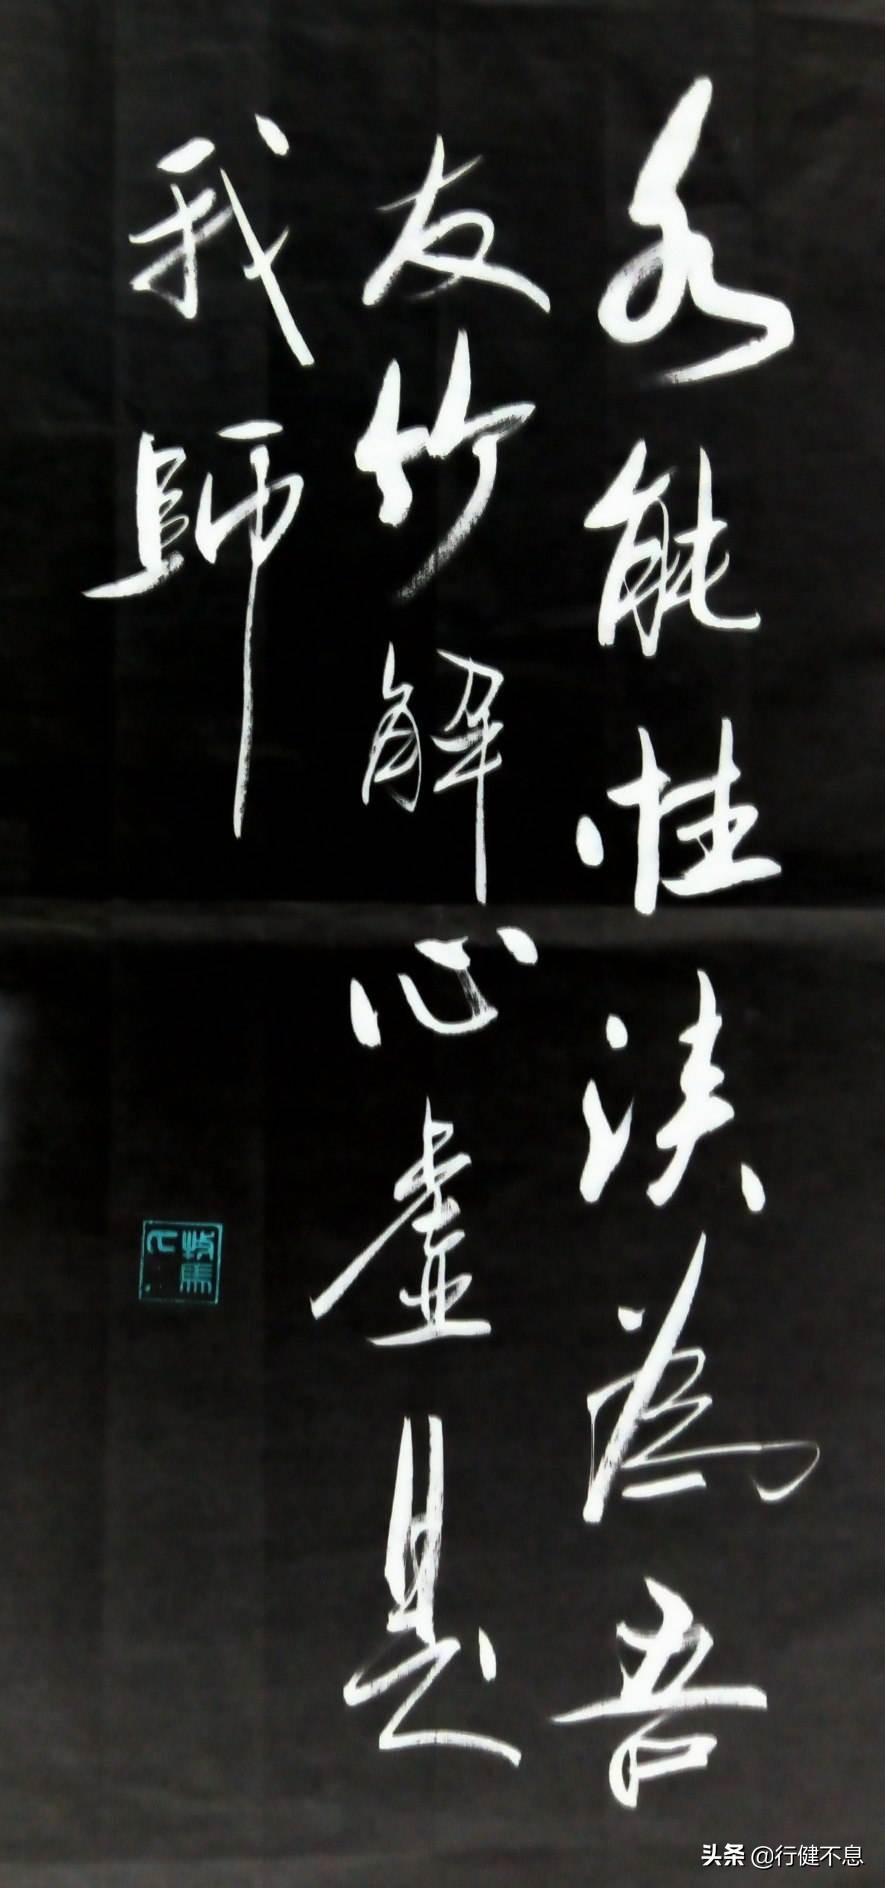 水能性淡為吾
友竹解心虛是
我師
头条 @行健不息